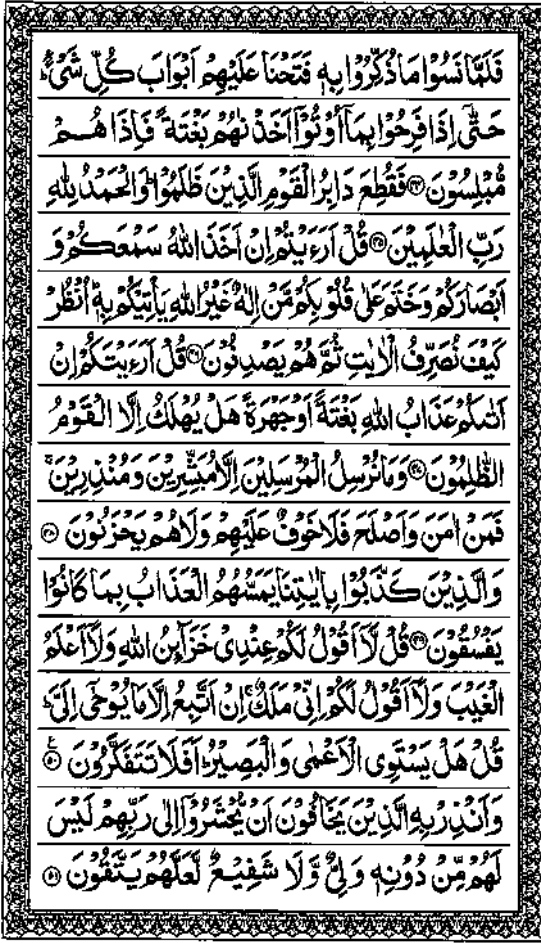 فَلَمَّا نَسُوْا مَا ذُكِّرُوْا بِهٖ فَتَحْنَا عَلَيْهِمْ اَبْوَابَ كُلِّ شَیْءٍ ؕ
حَتّٰۤی اِذَا فَرِحُوْا بِمَاۤ اُوْتُوْۤا اَخَذْنٰهُمْ بَغْتَةً فَاِذَا هُمْ
مُّبْلِسُوْنَ ﴿۴۴﴾ فَقُطِعَ دَابِرُ الْقَوْمِ الَّذِیْنَ ظَلَمُوْا ؕ وَالْحَمْدُ لِلّٰهِ
رَبِّ الْعٰلَمِیْنَ ﴿۴۵﴾ قُلْ اَرَءَیْتُمْ اِنْ اَخَذَ اللّٰهُ سَمْعَكُمْ وَ
اَبْصَارَكُمْ وَخَتَمَ عَلٰی قُلُوْبِكُمْ مَّنْ اِلٰهٌ غَیْرُ اللّٰهِ یَاْتِیْكُمْ بِهٖ ؕ اُنْظُرْ
كَیْفَ نُصَرِّفُ الْاٰیٰتِ ثُمَّ هُمْ یَصْدِفُوْنَ ﴿۴۶﴾ قُلْ اَرَءَیْتَكُمْ اِنْ
اَتٰىكُمْ عَذَابُ اللّٰهِ بَغْتَةً اَوْ جَهْرَةً هَلْ یُهْلَكُ اِلَّا الْقَوْمُ
الظّٰلِمُوْنَ ﴿۴۷﴾ وَمَا نُرْسِلُ الْمُرْسَلِیْنَ اِلَّا مُبَشِّرِیْنَ وَمُنْذِرِیْنَ ۚ
فَمَنْ اٰمَنَ وَاَصْلَحَ فَلَا خَوْفٌ عَلَیْهِمْ وَلَا هُمْ یَحْزَنُوْنَ ﴿۴۸﴾
وَالَّذِیْنَ كَذَّبُوْا بِاٰیٰتِنَا یَمَسُّهُمُ الْعَذَابُ بِمَا كَانُوْا
یَفْسُقُوْنَ ﴿۴۹﴾ قُلْ لَّاۤ اَقُوْلُ لَكُمْ عِنْدِیْ خَزَآىِٕنُ اللّٰهِ وَلَاۤ اَعْلَمُ
الْغَیْبَ وَلَاۤ اَقُوْلُ لَكُمْ اِنِّیْ مَلَكٌ ۚ اِنْ اَتَّبِعُ اِلَّا مَا یُوْحٰۤی اِلَیَّ ؕ
قُلْ هَلْ یَسْتَوِی الْاَعْمٰی وَالْبَصِیْرُ ؕ اَفَلَا تَتَفَكَّرُوْنَ ﴿۵۰﴾ ع
وَاَنْذِرْ بِهِ الَّذِیْنَ یَخَافُوْنَ اَنْ یُّحْشَرُوْۤا اِلٰی رَبِّهِمْ لَیْسَ
لَهُمْ مِّنْ دُوْنِهٖ وَلِیٌّ وَّلَا شَفِیْعٌ لَّعَلَّهُمْ یَتَّقُوْنَ ﴿۵۱﴾